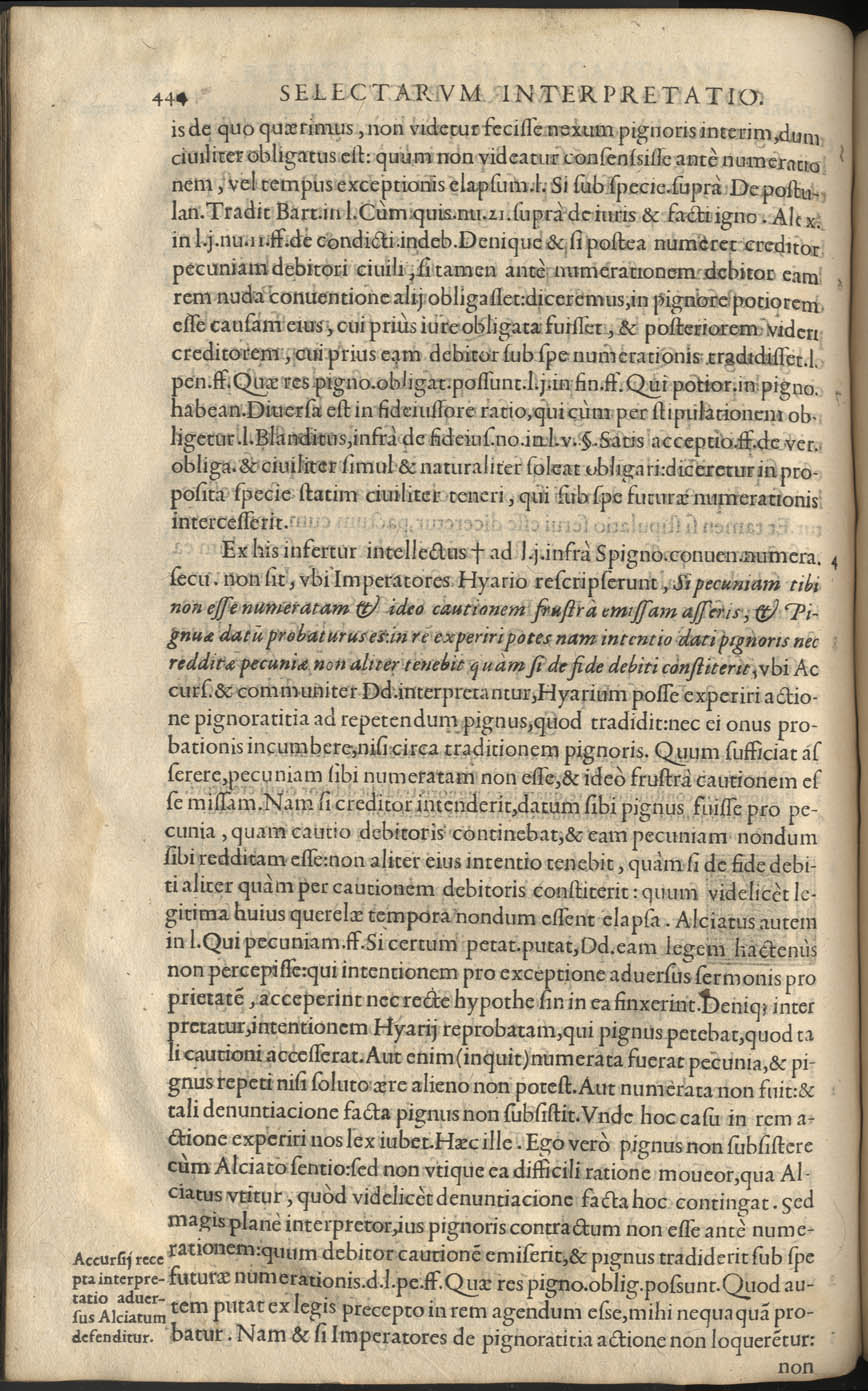 444 SELECTARVM INTERPRETATIO.
is de quo quærimus, non videtur fecisse nexum pignoris interim, dum
ciuiliter obligatus est: quum non videatur consensisse antè numeratio
nem, vel tempus exceptionis elapsum. l. Si sub specie. suprà De postu-
lan. Tradit Bart. in l. Cùm quis. nu. 21. suprà de iuris & facti igno. Alex.
in l. j. nu. 11. ff. de condicti. indeb. Denique & si postea numeret creditor
pecuniam debitori ciuili, si tamen antè numerationem debitor eam
rem nuda conuentione alij obligasset: diceremus, in pignore potiorem
esse causam eius, cui priùs iure obligata fuisset, & posteriorem videri
creditorem, cui prius eam debitor sub spe numerationis tradidisset. l.
pen. ff. Quæ res pigno. obligat. possunt. l. j. in fin. ff. Qui potior. in pigno.
habean. Diuersa est in fideiussore ratio, qui cùm per stipulationem ob-
ligetur. l. Blanditus, infrà de fideius. no. in l. v. §. Satis acceptio. ff. de ver.
obliga. & ciuiliter simul & naturaliter soleat obligari: diceretur in pro-
posita specie statim ciuiliter teneri, qui sub spe futuræ numerationis
intercesserit.
Ex his infertur intellectus † ad l. j. infrà S pigno. conuen. numera. 4
secu. non sit, vbi Imperatores Hyario rescripserunt, Si pecuniam tibi
non esse numeratam & ideo cautionem frustrà emissam asseris, & Pi-
gnuæ datũ probaturus es: in re experiri potes nam intentio dati pignoris nec
redditæ pecuniæ non aliter tenebit quàm si de fide debiti constiterit, vbi Ac
curs. & communiter Dd. interpretantur, Hyarium posse experiri actio-
ne pignoratitia ad repetendum pignus, quod tradidit: nec ei onus pro-
bationis incumbere, nisi circa traditionem pignoris. Quum sufficiat as
serere, pecuniam sibi numeratam non esse, & ideò frustrà cautionem es
se missam. Nam si creditor intenderit, datum sibi pignus fuisse pro pe-
cunia, quam cautio debitoris continebat, & eam pecuniam nondum
sibi redditam esse: non aliter eius intentio tenebit, quàm si de fide debi-
ti aliter quàm per cautionem debitoris constiterit: quum videlicèt le-
gitima huius querelæ tempora nondum essent elapsa. Alciatus autem
in l. Qui pecuniam. ff. Si certum petat. putat, Dd. eam legem hactenùs
non percepisse: qui intentionem pro exceptione aduersus sermonis pro
prietatẽ, acceperint nec recte hypothesin in ea finxerint. Deniq; inter
pretatur, intentionem Hyarij reprobatam, qui pignus petebat, quod ta
li cautioni accesserat. Aut enim (inquit) numerata fuerat pecunia, & pi-
gnus repeti nisi soluto ære alieno non potest. Aut numerata non fuit: &
tali denuntiacione facta pignus non subsistit. Vnde hoc casu in rem a-
ctione experiri nos lex iubet. Hæc ille. Ego verò pignus non subsistere
cùm Alciato sentio: sed non vtique ea difficili ratione moueor, qua Al-
ciatus vtitur, quòd videlicèt denuntiacione facta hoc contingat. Sed
magis planè interpretor, ius pignoris contractum non esse antè nume-
rationem: quum debitor cautionẽ emiserit, & pignus tradiderit sub spe
futuræ numerationis. d. l. pe. ff. Quæ res pigno. oblig. possunt. Quod au-
tem putat ex legis precepto in rem agendum esse, mihi nequaquã pro-
batur. Nam & si Imperatores de pignoratitia actione non loquerẽtur:
non
Accursij rece
pta interpre-
tatio aduer-
sus Alciatum
defenditur.